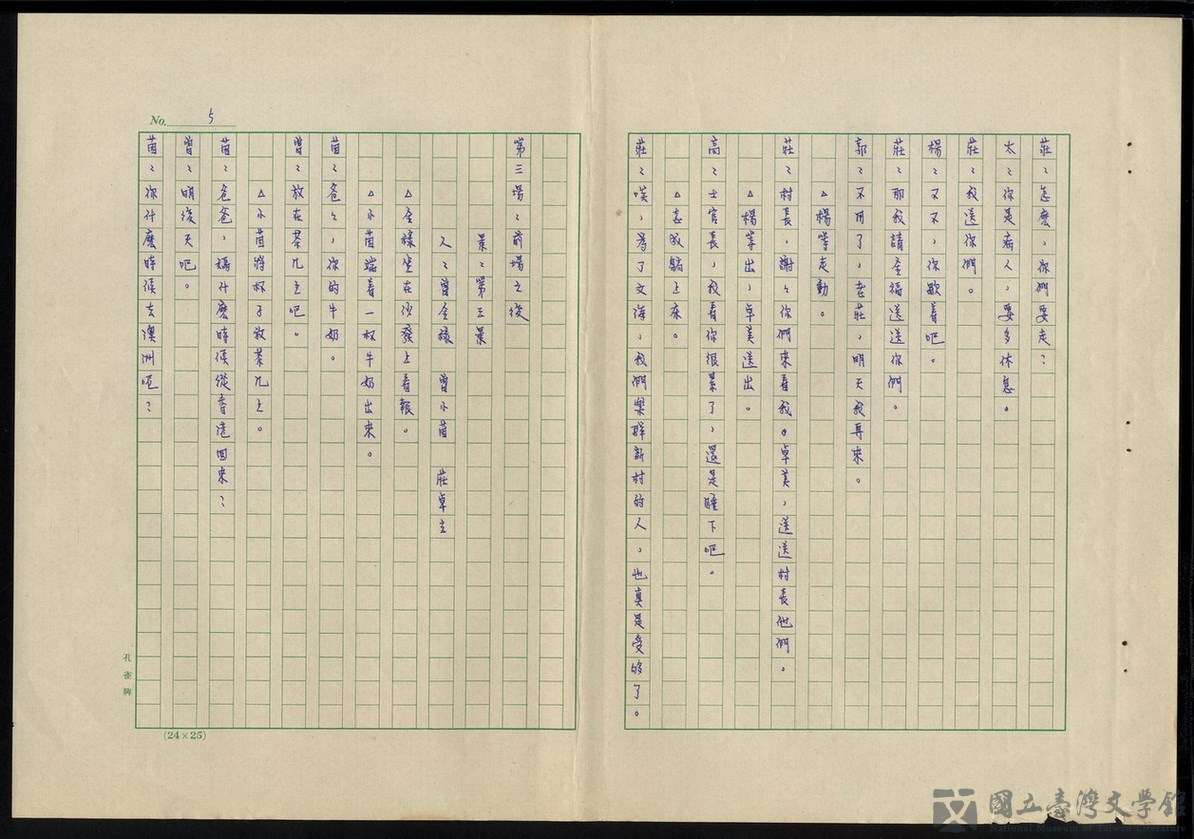 莊：怎麼，你們要走？
太：你是病人，要多休息。
莊：我送你們。
楊：不不，你歇着吧。
莊：那我請金福送送你們。
郭：不用了，老莊，明天我再來。
△楊等走動。
莊：村長，謝謝你們來看我。卓美，送送村長他們。
△楊等出，卓美送出。
高：士官長，我看你很累了，還是睡下吧。
△志成躺上床。
莊：唉，為了文海，我們樂群新村的人，也真是受够了。
No. 5
第三場：前場之後
景：第三景
人：曾金祿 曾小茵 莊卓立
△金祿坐在沙發上看報。
△小茵端着一杯牛奶出來。
茵：爸爸，你的牛奶。
曾：放在茶几上吧。
△小茵將杯子放茶几上。
茵：爸爸，媽什麼時候從香港回來？
曾：明後天吧。
茵：你什麼時候去澳洲呢？
孔雀牌
(24×25)
國立臺灣文學館
National Museum of Taiwan Literature